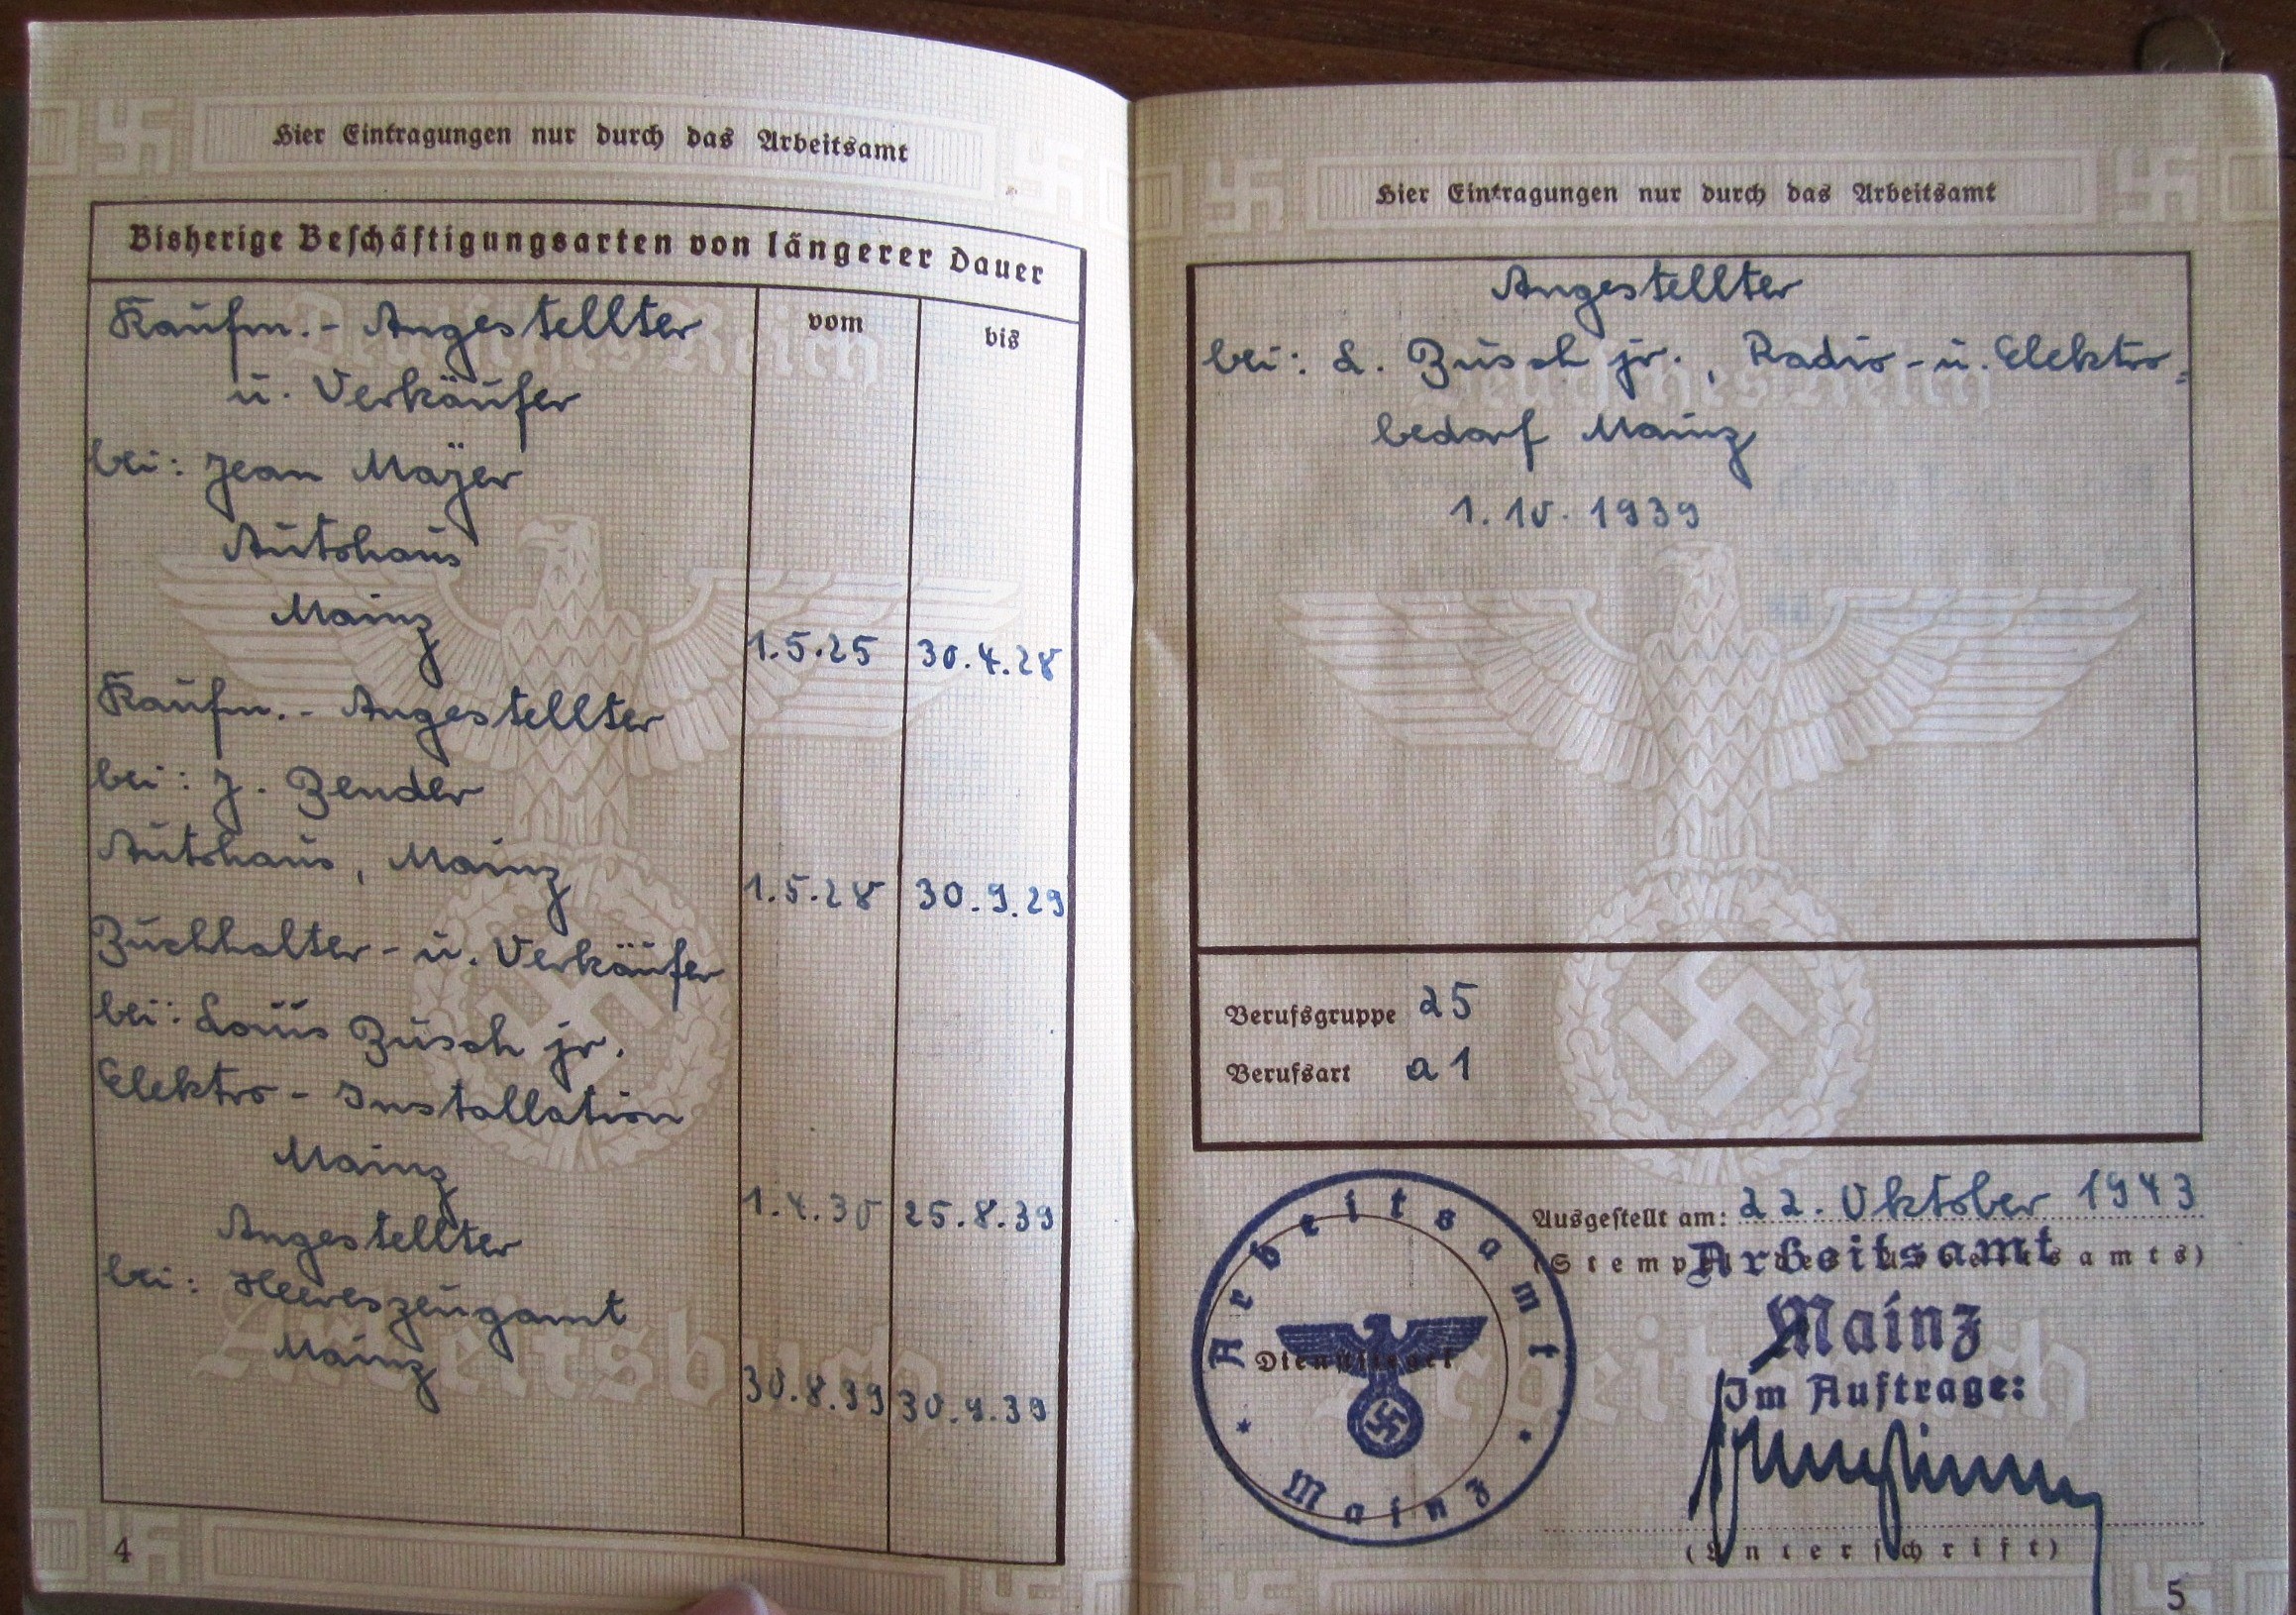 Hier Eintragungen nur durch das Arbeitsamt
Bisherige Beschäftigungsarten von längerer Dauer
vom
bis
Kaufm.- Angestellter
u. Verkäufer
bei: Jean Mayer
Autohaus
Mainz
1.5.25 30.4.28
Kaufm.- Angestellter
bei: J. Zender
Autohaus, Mainz
1.5.28 30.9.29
Buchhalter- u. Verkäufer
bei: Louis Busch jr.
Elektro - Installation
Mainz
1.4.30 25.8.39
Angestellter
bei: Heereszeugamt
Mainz
30.8.39 30.9.39
Deutsches Reich
Arbeitsbuch
4
Hier Eintragungen nur durch das Arbeitsamt
Angestellter
bei: L. Busch jr., Radio- u. Elektro-
bedarf Mainz
1.10.1939
Deutsches Reich
Berufsgruppe 25
Berufsart a1
Ausgestellt am: 22. Oktober 1943
(Stempel des Arbeitsamts)
Arbeitsamt
Mainz
Im Auftrage:
(Unterschrift)
Arbeitsamt
Dienstsiegel
Mainz
Arbeitsbuch
5